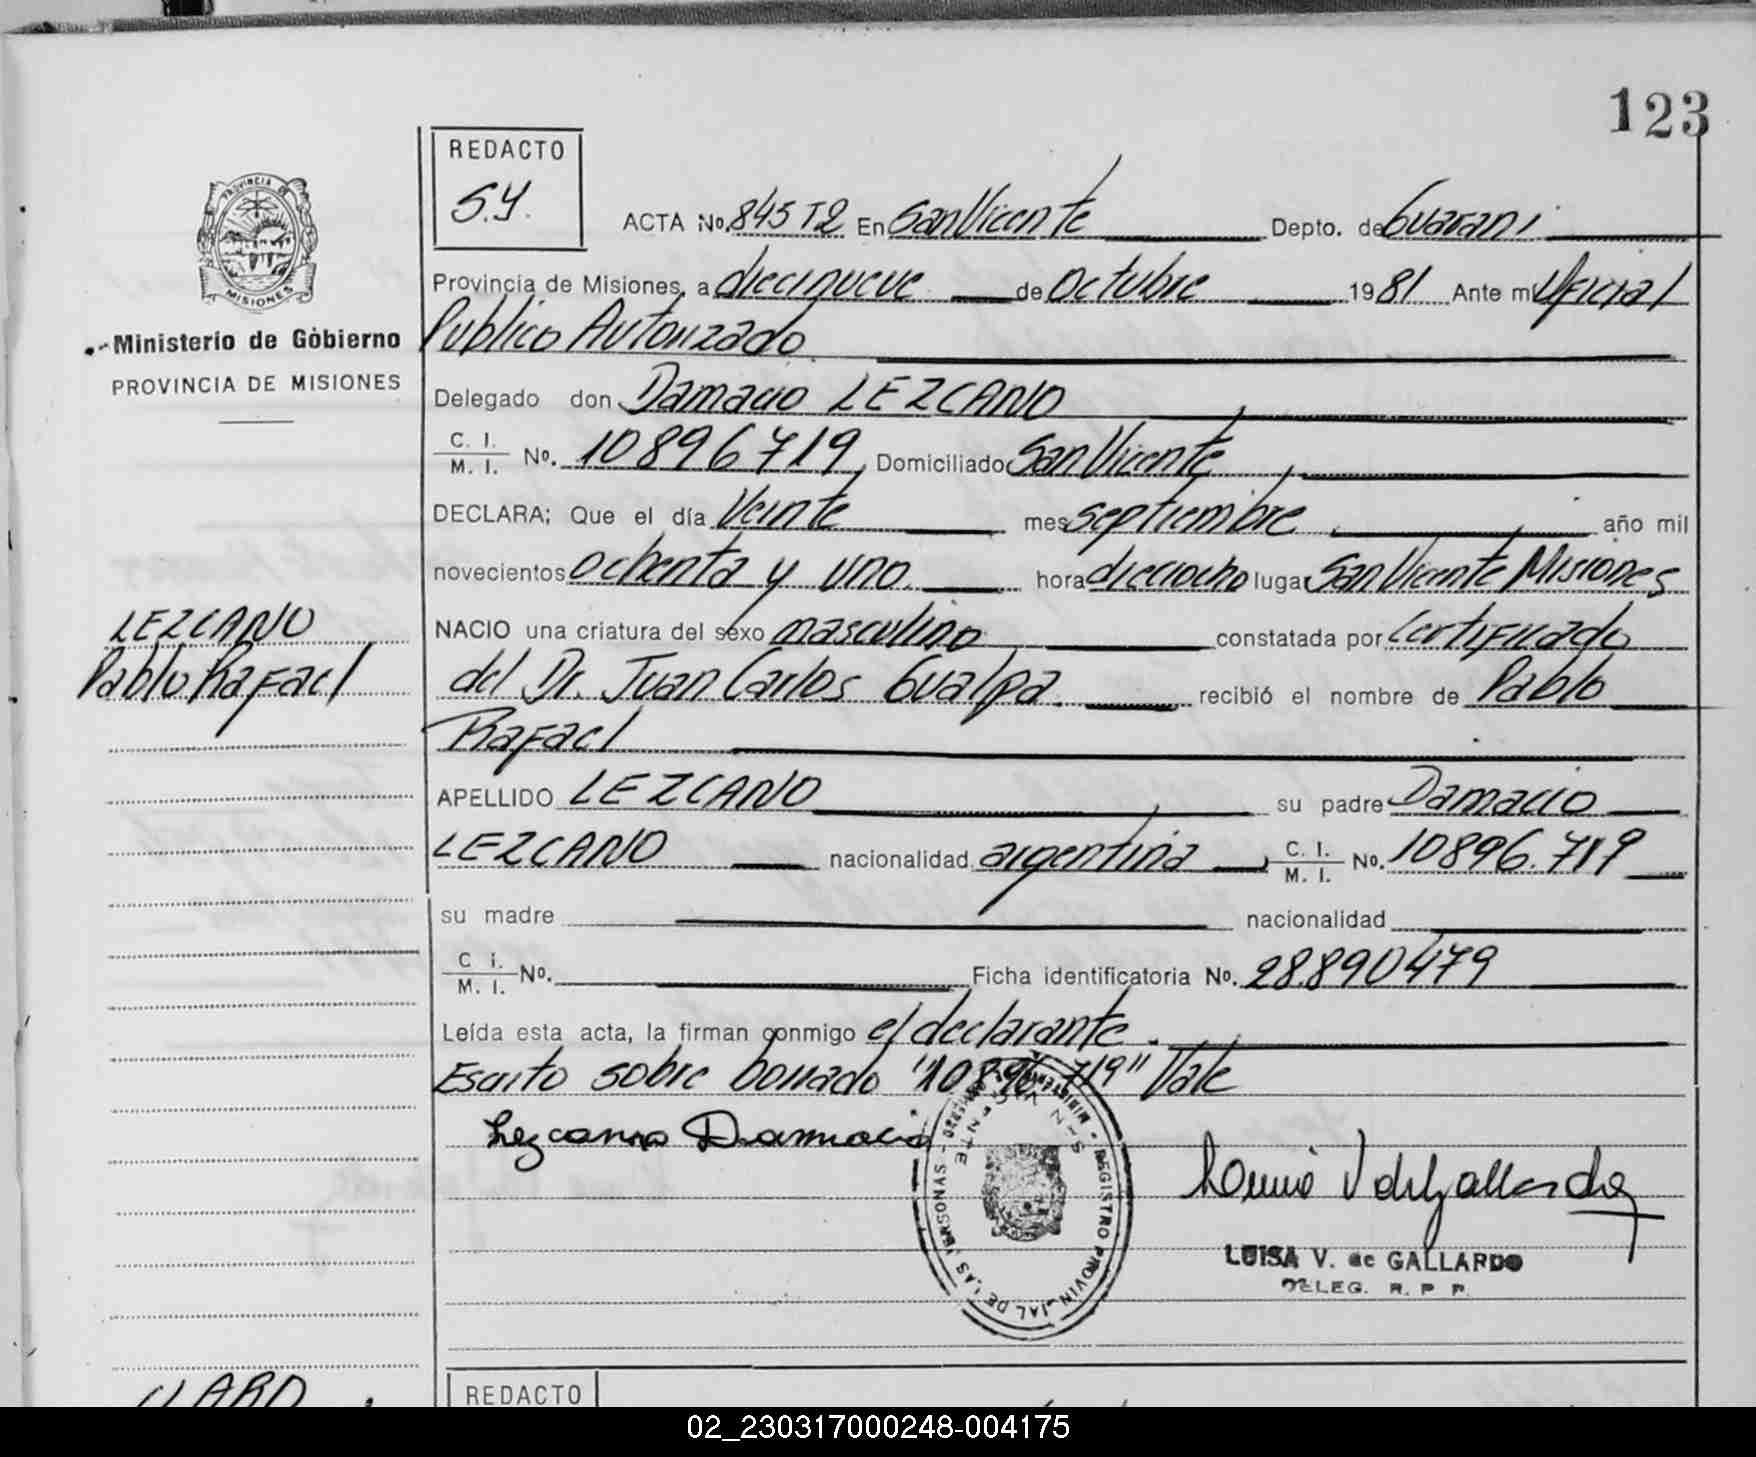 123
REDACTO
S.Y.
PROVINCIA DE
MISIONES
Ministerio de Gobierno
PROVINCIA DE MISIONES
ACTA No. 845 T2 En San Vicente Depto. de Guarani
Provincia de Misiones, a diecinueve de Octubre 1981 Ante mi Oficial
Publico Autorizado
Delegado don Damacio LEZCANO
C. I. / M. I. No. 10896719, Domiciliado San Vicente,
DECLARA; Que el día Veinte mes septiembre año mil
novecientos ochenta y uno hora dieciocho lugar San Vicente Misiones
LEZCANO
Pablo Rafael
NACIO una criatura del sexo masculino constatada por certificado
del Dr. Juan Carlos Gualpa. recibió el nombre de Pablo
Rafael
APELLIDO LEZCANO su padre Damacio
LEZCANO nacionalidad argentina, C. I. / M. I. No. 10896.719
su madre nacionalidad
C i. / M. I. No. Ficha identificatoria No. 28.890479
Leída esta acta, la firman conmigo el declarante.
Escrito sobre borrado "10896719" Vale
Lezcano Damacio
REGISTRO PROVINCIAL DE LAS PERSONAS
SAN VICENTE
LUISA V. de GALLARDO
DELEG. R. P. P.
REDACTO
02_230317000248-004175